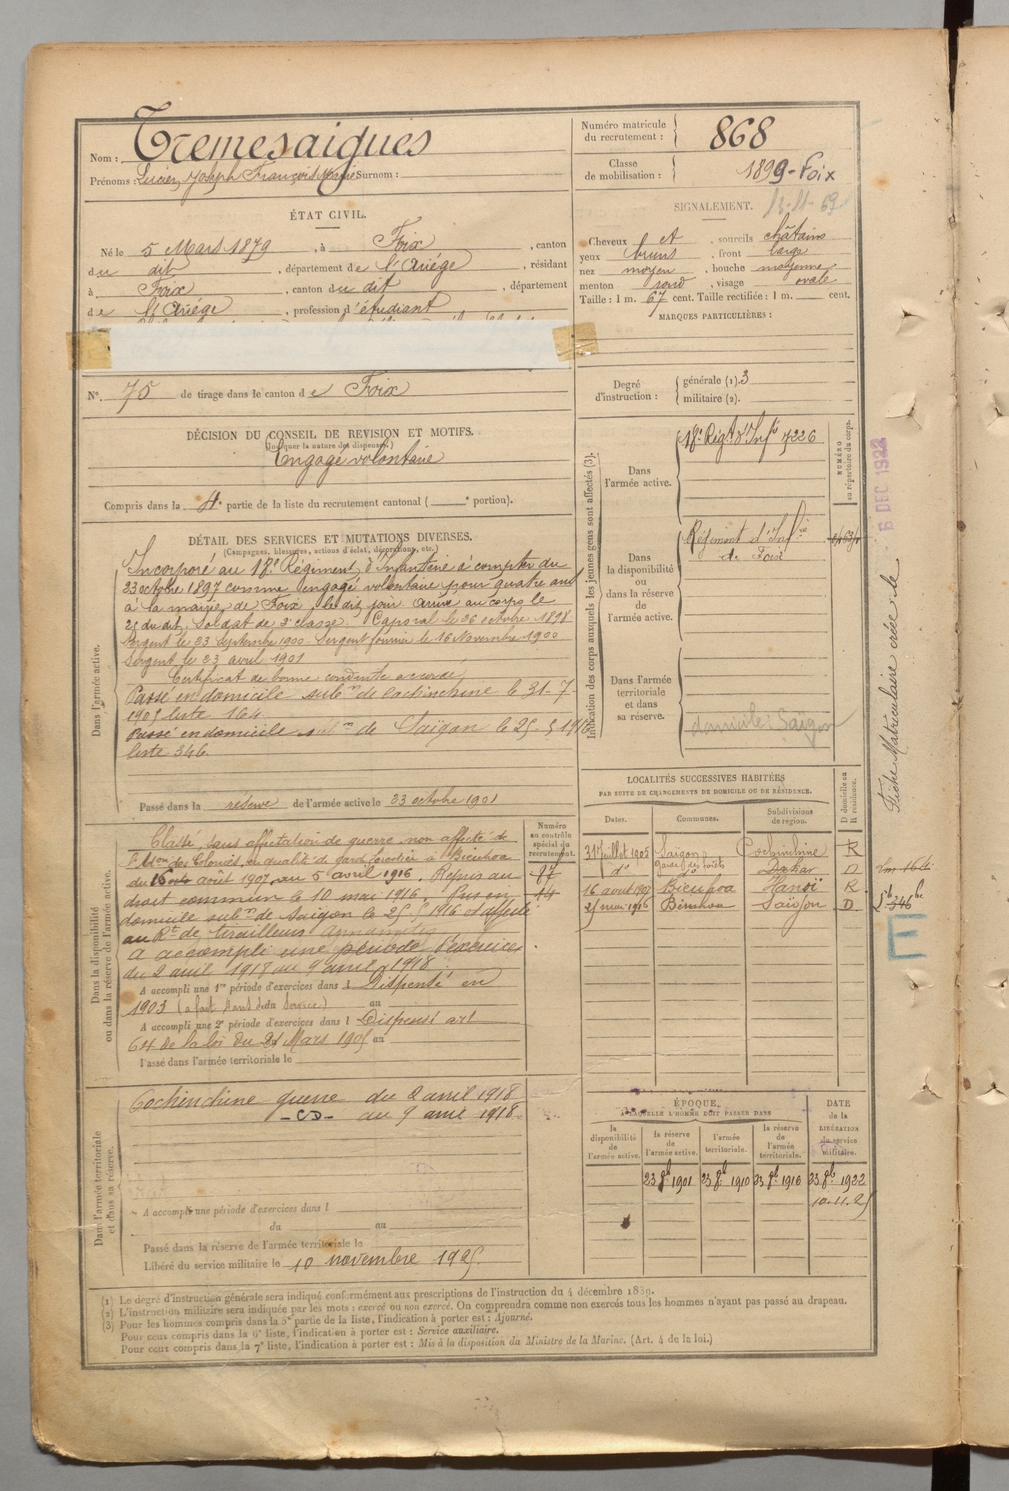 Nom : Tremesaigues
Prénoms : Lucien, Joseph François Surnom :
Numéro matricule du recrutement : 868
Classe de mobilisation : 1899 - Foix
ÉTAT CIVIL.
Né le 5 Mars 1879, à Foix, canton
du dit, département de l'Ariége, résidant
à Foix, canton du dit, département
de l'Ariége, profession d'étudiant
N° 75 de tirage dans le canton de Foix
SIGNALEMENT.
Cheveux et, sourcils châtains
yeux bruns, front large
nez moyen, bouche moyenne
menton rond, visage ovale
Taille : 1 m. 67 cent. Taille rectifiée : 1 m. cent.
MARQUES PARTICULIÈRES :
Degré d'instruction : générale (1). 3
militaire (2).
DÉCISION DU CONSEIL DE REVISION ET MOTIFS.
(Indiquer la nature des dispenses.)
Engagé volontaire
Compris dans la 4e partie de la liste du recrutement cantonal ( e portion).
DÉTAIL DES SERVICES ET MUTATIONS DIVERSES.
(Campagnes, blessures, actions d'éclat, décorations, etc.)
Dans l'armée active.
Incorporé au Régiment d'Infanterie à compter du
23 octobre 1897 comme engagé volontaire pour quatre ans
à la mairie de Foix, le dit jour arrivé au corps le
25 du dit, Soldat de 2e classe. Caporal le 26 octobre 1898
Sergent le 23 septembre 1900 Sergent fourrier le 16 Novembre 1900
Sergent le 23 avril 1901
Certificat de bonne conduite accordé
Passé en domicile subon de Cochinchine le 31-7-
1905 liste 164
Passé en domicile de Saïgon le 25-5 1916
liste 346
Passé dans la réserve de l'armée active le 23 octobre 1901
Indication des corps auxquels les jeunes gens sont affectés (3).
Dans l'armée active. Régt d'Infie 7226
NUMÉRO au répertoire du corps.
Dans la disponibilité ou dans la réserve de l'armée active.
Régiment d'Infie
de Foix
Dans l'armée territoriale et dans sa réserve.
domicile : Saïgon
6 DEC 1922
Fiche Matriculaire créée le
LOCALITÉS SUCCESSIVES HABITÉES
PAR SUITE DE CHANGEMENTS DE DOMICILE OU DE RÉSIDENCE.
Dates. Communes. Subdivisions de région. D domicile ou R résidence.
31 juillet 1905 Saigon Cochinchine R
do Dakar D
16 aout 1907 Bienhoa Hanoï R
25 mai 1916 Bienhoa Saïgon D
E
Dans la disponibilité ou dans la réserve de l'armée active.
Numéro au contrôle spécial du recrutement.
Classé, sans affectation de guerre, non affecté
des Colonies, en qualité de garde forestier à Bienhoa
du 16 août 1907 au 5 avril 1916. Repris au
droit commun le 10 mai 1916. Pris en
domicile subon de Saigon le 25-5 1916 et affecté
au Rt de tirailleurs annamites
A accompli une période d'exercices
du 2 avril 1918 au 9 avril 1918
A accompli une 1re période d'exercices dans l Dispensé en
1903 (a fait 4 ans de Service) au
A accompli une 2e période d'exercices dans l Dispensé art
64 de la loi du 21 Mars 1905 au
Passé dans l'armée territoriale le
Dans l'armée territoriale et dans sa réserve.
Cochinchine guerre du 2 avril 1918
- CD - au 9 avril 1918
A accompli une période d'exercices dans l
du au
Passé dans la réserve de l'armée territoriale le
Libéré du service militaire le 10 novembre 1925.
ÉPOQUE
A LAQUELLE L'HOMME DOIT PASSER DANS
la disponibilité de l'armée active. la réserve de l'armée active. l'armée territoriale. la réserve de l'armée territoriale. DATE de la LIBÉRATION du service militaire.
23 8b 1901 23 8b 1910 23 8b 1916 23 8b 1922
10.11.25
(1) Le degré d'instruction générale sera indiqué conformément aux prescriptions de l'instruction du 4 décembre 1889.
(2) L'instruction militaire sera indiquée par les mots : exercé ou non exercé. On comprendra comme non exercés tous les hommes n'ayant pas passé au drapeau.
(3) Pour les hommes compris dans la 5e partie de la liste, l'indication à porter est : Ajourné.
Pour ceux compris dans la 6e liste, l'indication à porter est : Service auxiliaire.
Pour ceux compris dans la 7e liste, l'indication à porter est : Mis à la disposition du Ministre de la Marine. (Art. 4 de la loi.)